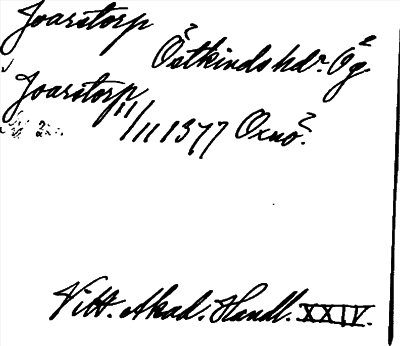 Ivarstorp
Östkinds hd. Ög
Ivarstorp
11/11 1377 Oxnö.
Vitt. Akad. Handl. XXIV.